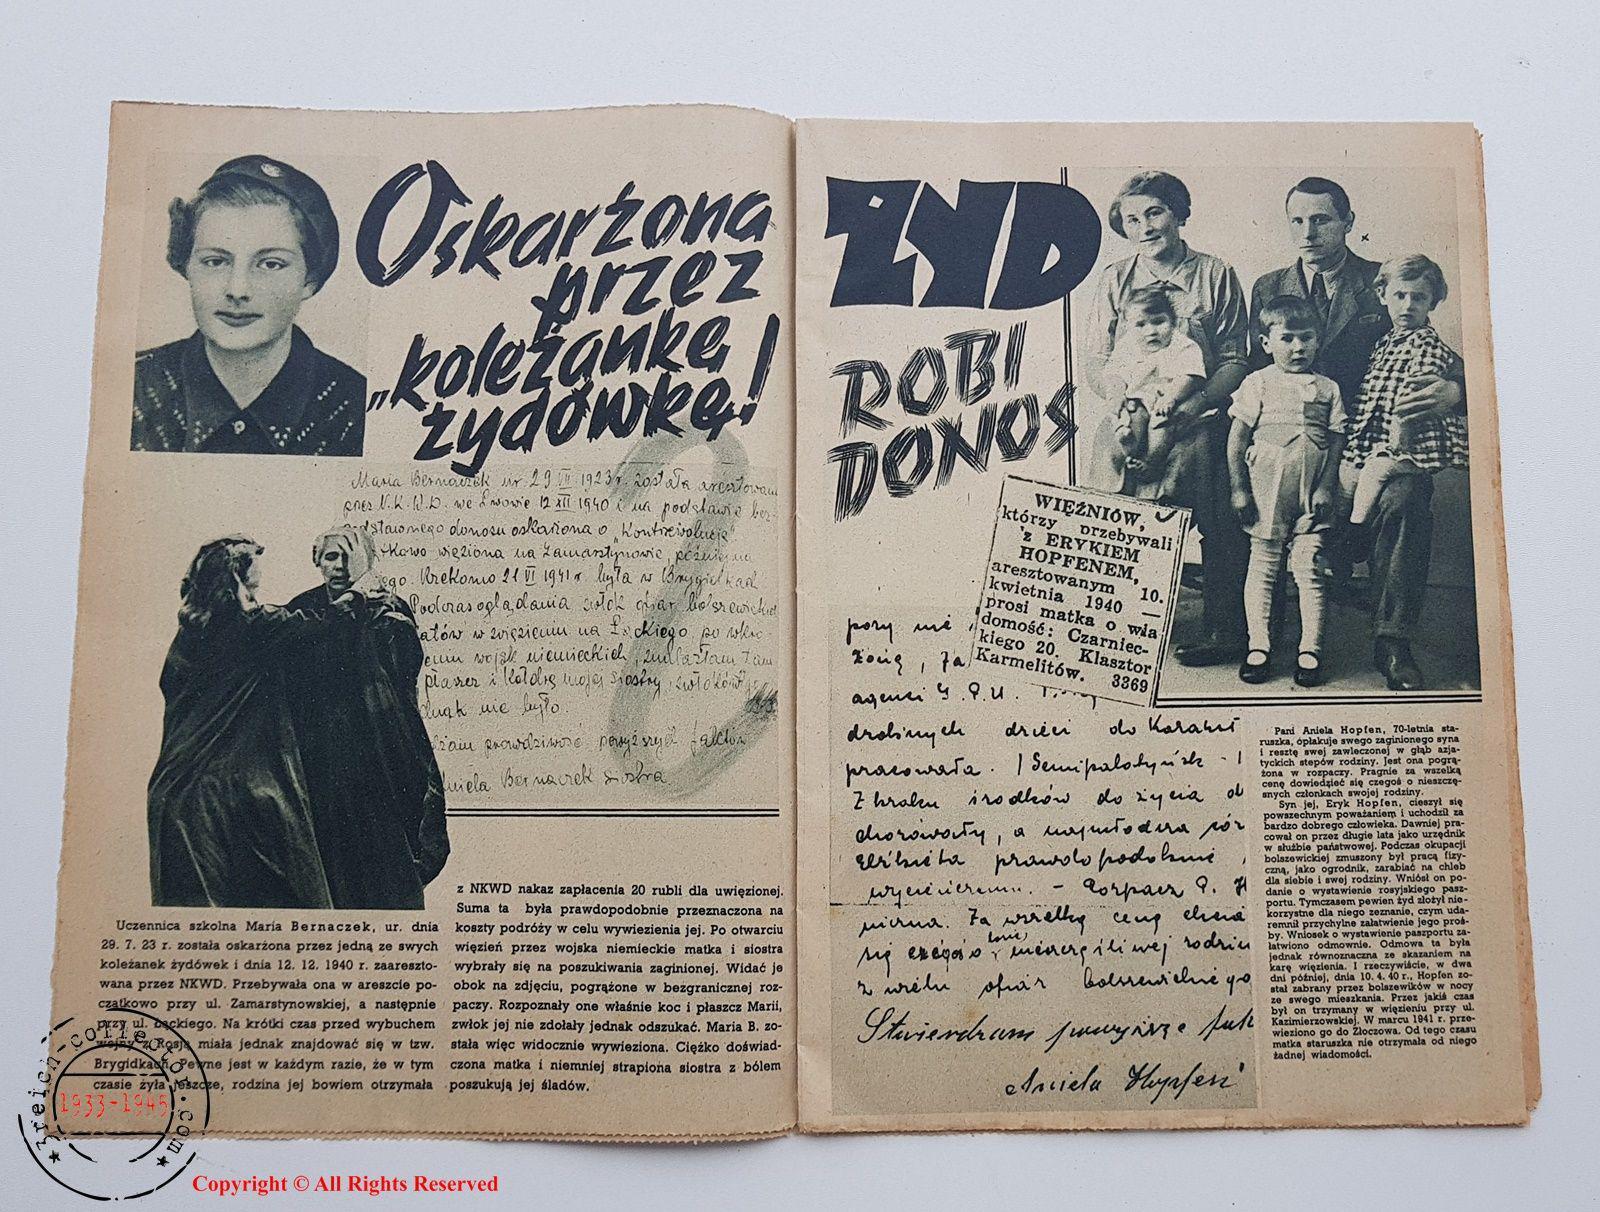 Oskarżona
przez
„koleżankę
żydówkę!
Maria Bernaczek ur. 29 VII 1923 r. została aresztowana
przez N.K.W.D. we Lwowie 12 XII 1940 i na podstawie bez-
podstawnego donosu oskarżona o „Kontrewolucję"
więziona na Zamarstynowie, później na
Rzekomo 21 VI 1941 r. była w Brygidkach
Podczas oglądania zwłok ofiar bolszewickich
w więzieniu na Łąckiego, po wkro
wojsk niemieckich, znalazłam tam
płaszcz i kołdrę mojej siostry, zwłok
nie było.
prawdziwość powyższych faktów
Bernaczek siostra
Uczennica szkolna Maria Bernaczek, ur. dnia
29. 7. 23 r. została oskarżona przez jedną ze swych
koleżanek żydówek i dnia 12. 12. 1940 r. zaareszto-
wana przez NKWD. Przebywała ona w areszcie po-
czątkowo przy ul. Zamarstynowskiej, a następnie
przy ul. Łąckiego. Na krótki czas przed wybuchem
wojny z Rosją miała jednak znajdować się w tzw.
Brygidkach. Pewne jest w każdym razie, że w tym
czasie żyła jeszcze, rodzina jej bowiem otrzymała
z NKWD nakaz zapłacenia 20 rubli dla uwięzionej.
Suma ta była prawdopodobnie przeznaczona na
koszty podróży w celu wywiezienia jej. Po otwarciu
więzień przez wojska niemieckie matka i siostra
wybrały się na poszukiwania zaginionej. Widać je
obok na zdjęciu, pogrążone w bezgranicznej roz-
paczy. Rozpoznały one właśnie koc i płaszcz Marii,
zwłok jej nie zdołały jednak odszukać. Maria B. zo-
stała więc widocznie wywieziona. Ciężko doświad-
czona matka i niemniej strapiona siostra z bólem
poszukują jej śladów.
ŻYD
ROBI
DONOS
WIĘŹNIÓW,
którzy przebywali
z ERYKIEM
HOPFENEM,
aresztowanym 10.
kwietnia 1940 —
prosi matka o wia
domość: Czarniec-
kiego 20. Klasztor
Karmelitów. 3369
pory nie
żonę, za
agenci G.P.U.
drobnych dzieci do
pracowała. /Semipałatyńsk -/
Z braku środków do życia
chorowały, a najmłodsza
Elżbieta prawdopodobnie
Za wszelką cenę
się czegoś o
z wielu ofiar bolszewickiego
Stwierdzam powyższe
Aniela Hopfen
Pani Aniela Hopfen, 70-letnia sta-
ruszka, opłakuje swego zaginionego syna
i resztę swej zawleczonej w głąb azja-
tyckich stepów rodziny. Jest ona pogrą-
żona w rozpaczy. Pragnie za wszelką
cenę dowiedzieć się czegoś o nieszczę-
snych członkach swojej rodziny.
Syn jej, Eryk Hopfen, cieszył się
powszechnym poważaniem i uchodził za
bardzo dobrego człowieka. Dawniej pra-
cował on przez długie lata jako urzędnik
w służbie państwowej. Podczas okupacji
bolszewickiej zmuszony był pracą fizy-
czną, jako ogrodnik, zarabiać na chleb
dla siebie i swej rodziny. Wniósł on po-
danie o wystawienie rosyjskiego pasz-
portu. Tymczasem pewien żyd złożył nie-
korzystne dla niego zeznanie, czym uda-
remnił przychylne załatwienie jego proś-
by. Wniosek o wystawienie paszportu za-
łatwiono odmownie. Odmowa ta była
jednak równoznaczna ze skazaniem na
karę więzienia. I rzeczywiście, w dwa
dni później, dnia 10. 4. 40 r., Hopfen zo-
stał zabrany przez bolszewików w nocy
ze swego mieszkania. Przez jakiś czas
był on trzymany w więzieniu przy ul.
Kazimierzowskiej. W marcu 1941 r. prze-
wieziono go do Złoczowa. Od tego czasu
matka staruszka nie otrzymała od niego
żadnej wiadomości.
3reich-collector.com
1933-1945
Copyright © All Rights Reserved